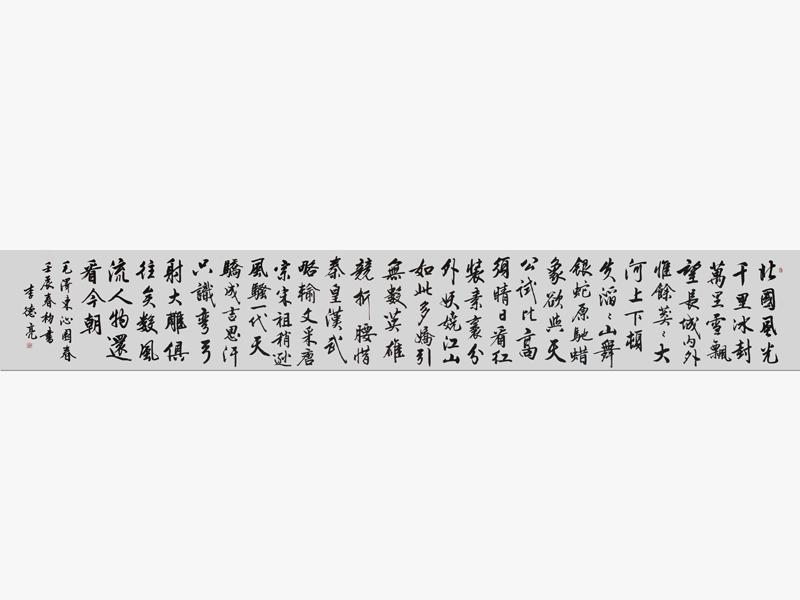 北國風光
千里冰封
萬里雪飄
望長城內外
惟餘莽〻大
河上下頓
失滔〻山舞
銀蛇原馳蜡
象欲與天
公試比高
須晴日看紅
裝素裹分
外妖嬈江山
如此多嬌引
無數英雄
競折腰惜
秦皇漢武
略輸文采唐
宗宋祖稍遜
風騷一代天
驕成吉思汗
只識彎弓
射大雕俱
往矣數風
流人物還
看今朝
毛澤東沁園春
壬辰春初書
李德亮